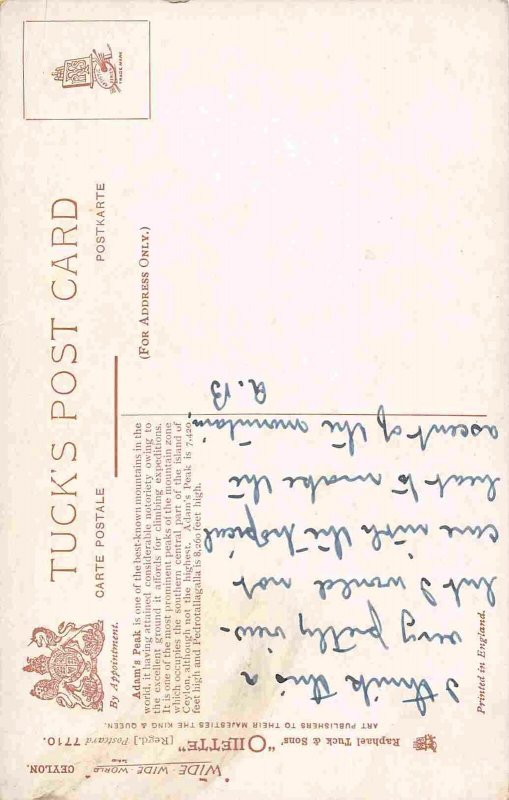 TUCK'S POST CARD
CARTE POSTALE
POSTKARTE
By Appointment.
(FOR ADDRESS ONLY.)
Adam's Peak is one of the best-known mountains in the
world, it having attained considerable notoriety owing to
the excellent ground it affords for climbing expeditions.
It is one of the most prominent peaks of the mountain zone
which occupies the southern central part of the island of
Ceylon, although not the highest. Adam's Peak is 7,420
feet high and Pedrotallagalla is 8,260 feet high.
CEYLON.
WIDE-WIDE-WORLD
Raphael Tuck & Sons' "OILETTE" [Regd.] Postcard 7710.
ART PUBLISHERS TO THEIR MAJESTIES THE KING & QUEEN.
I think this a
very pretty view-
but I would not
care with the tropical
heat to make the
ascent of the mountain.
A.B
Printed in England.
TRADE MARK